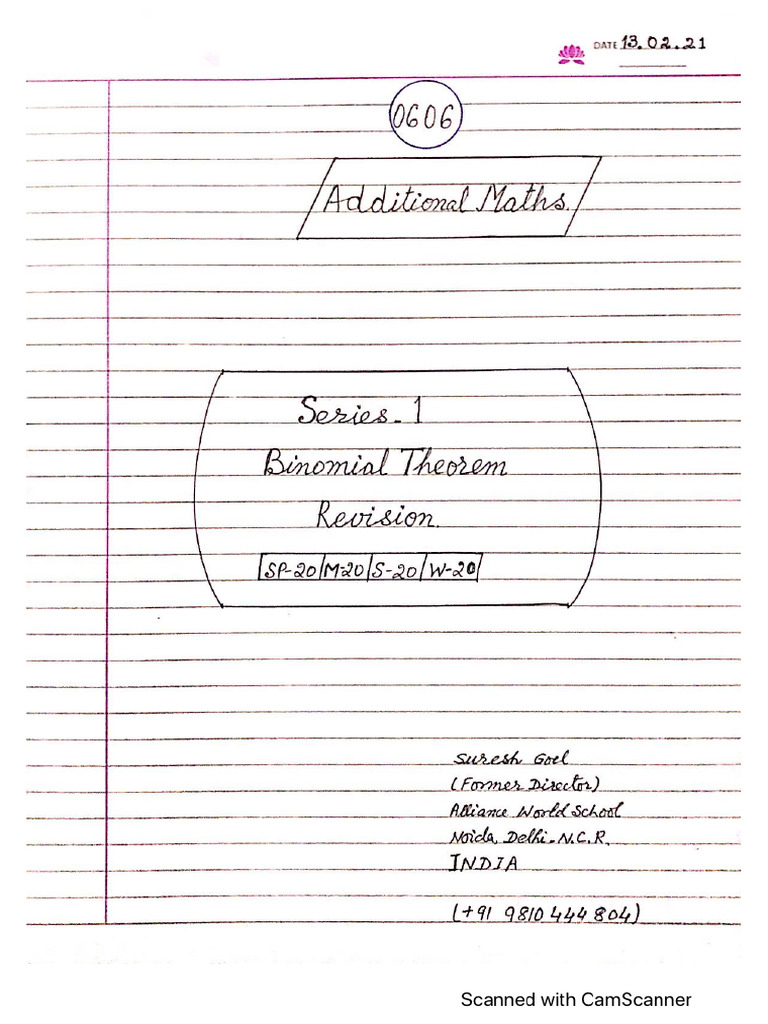 DATE 13.02.21
0606
Additional Maths.
Series-1
Binomial Theorem
Revision.
SP-20 M-20 S-20 W-20
Suresh Goel
(Former Director)
Alliance World School
Noida, Delhi-N.C.R.
INDIA
(+91 9810 444 804)
Scanned with CamScanner